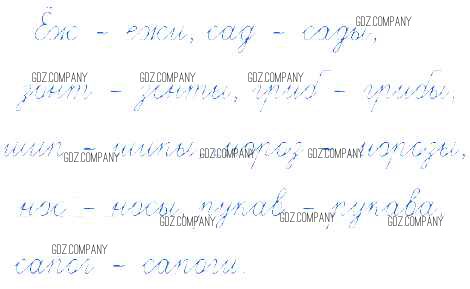 Ёж – ежи, сад – сады,
зонт – зонты, гриб – грибы,
шип – шипы, мороз – морозы,
нос – носы, рукав – рукава,
сапог – сапоги.
GDZ.COMPANY
GDZ.COMPANY
GDZ.COMPANY
GDZ.COMPANY
GDZ.COMPANY
GDZ.COMPANY
GDZ.COMPANY
GDZ.COMPANY
GDZ.COMPANY
GDZ.COMPANY
GDZ.COMPANY